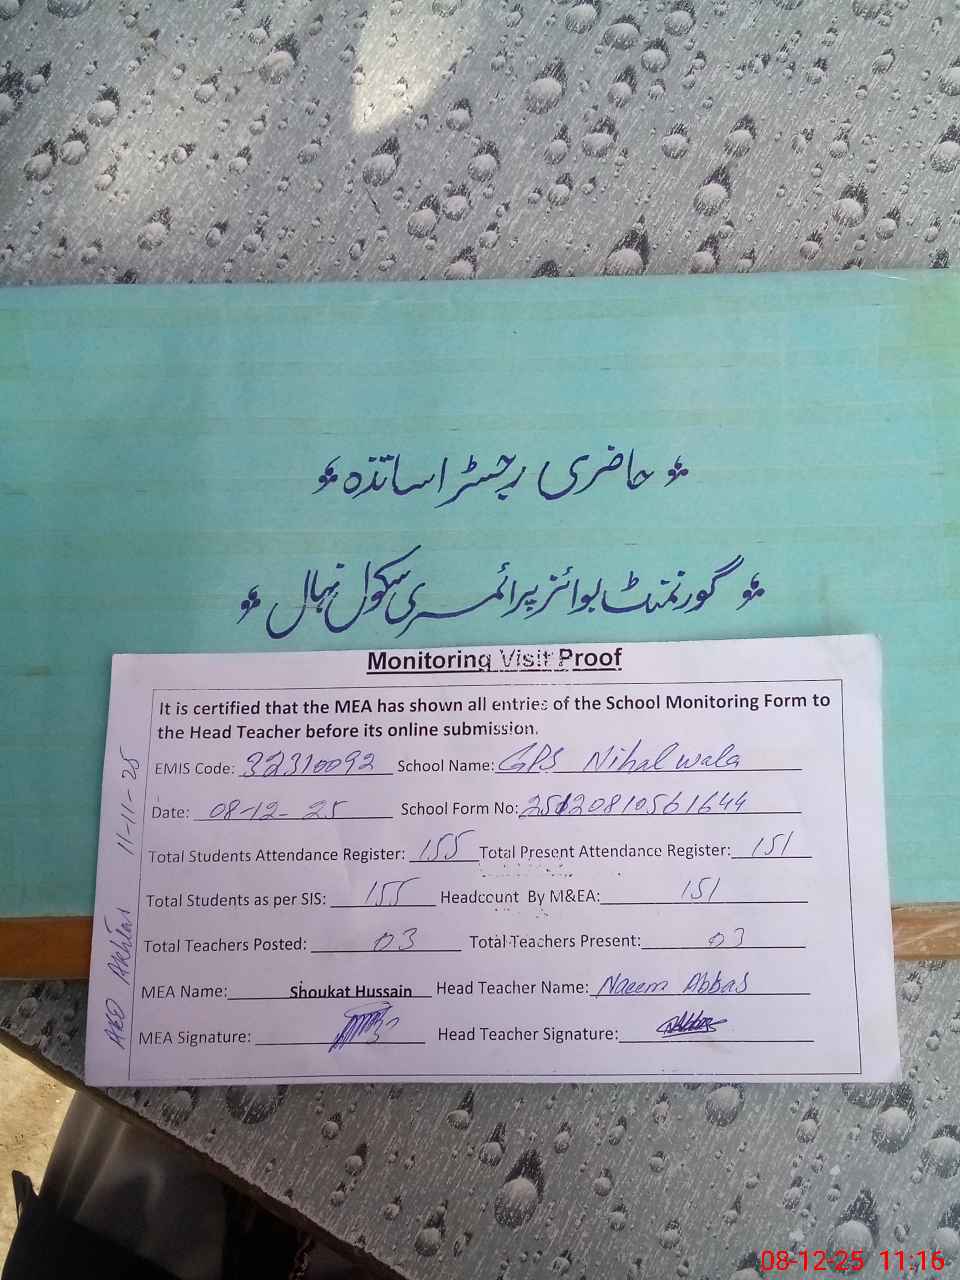 حاضری رجسٹر اساتذہ
گورنمنٹ بوائز پرائمری سکول نہال
Monitoring Visit Proof
It is certified that the MEA has shown all entries of the School Monitoring Form to
the Head Teacher before its online submission.
EMIS Code: 32310092 School Name: GPS Nihal wala
Date: 08-12-25 School Form No: 25120810561644
Total Students Attendance Register: 155 Total Present Attendance Register: 151
Total Students as per SIS: 155 Headcount By M&EA: 151
Total Teachers Posted: 03 Total Teachers Present: 03
MEA Name: Shoukat Hussain Head Teacher Name: Naeem Abbas
MEA Signature: Head Teacher Signature:
AEO Akhtar 11-11-25
08-12-25 11:16